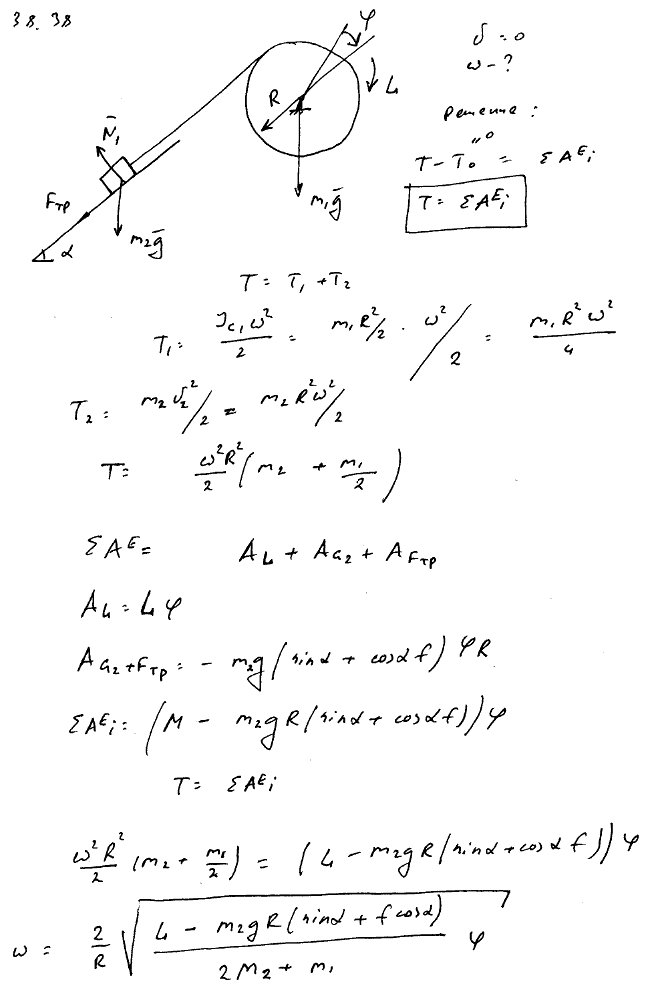 38.38
φ
δ = 0
ω - ?
R
L
решение:
N̄₁
"0
T - T₀ = ΣAᴱᵢ
Fтр
m₁ḡ
T = ΣAᴱᵢ
α
m₂ḡ
T = T₁ + T₂
T₁ = Jc₁ω²/2 = m₁R²/2 · ω²/2 = m₁R²ω²/4
T₂ = m₂υ₂²/2 = m₂R²ω²/2
T = ω²R²/2 (m₂ + m₁/2)
ΣAᴱ = A_L + A_G₂ + A_Fтр
A_L = Lφ
A_G₂+Fтр = - m₂g(sinα + cosα f) φR
ΣAᴱᵢ = (M - m₂gR(sinα + cosα f))φ
T = ΣAᴱᵢ
ω²R²/2 (m₂ + m₁/2) = (L - m₂gR(sinα + cosα f)) φ
ω = 2/R √((L - m₂gR(sinα + f cosα))/(2m₂ + m₁) φ)